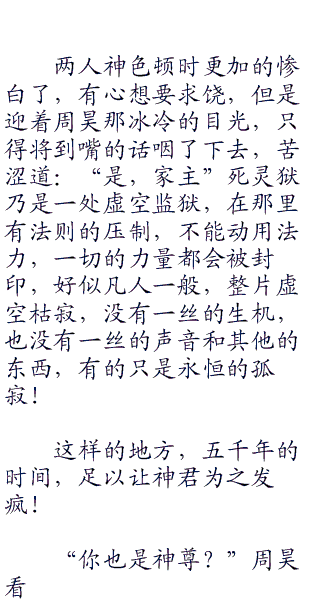 两人神色顿时更加的惨
白了，有心想要求饶，但是
迎着周昊那冰冷的目光，只
得将到嘴的话咽了下去，苦
涩道：“是，家主”死灵狱
乃是一处虚空监狱，在那里
有法则的压制，不能动用法
力，一切的力量都会被封
印，好似凡人一般，整片虚
空枯寂，没有一丝的生机，
也没有一丝的声音和其他的
东西，有的只是永恒的孤
寂！
这样的地方，五千年的
时间，足以让神君为之发
疯！
“你也是神尊？”周昊
看